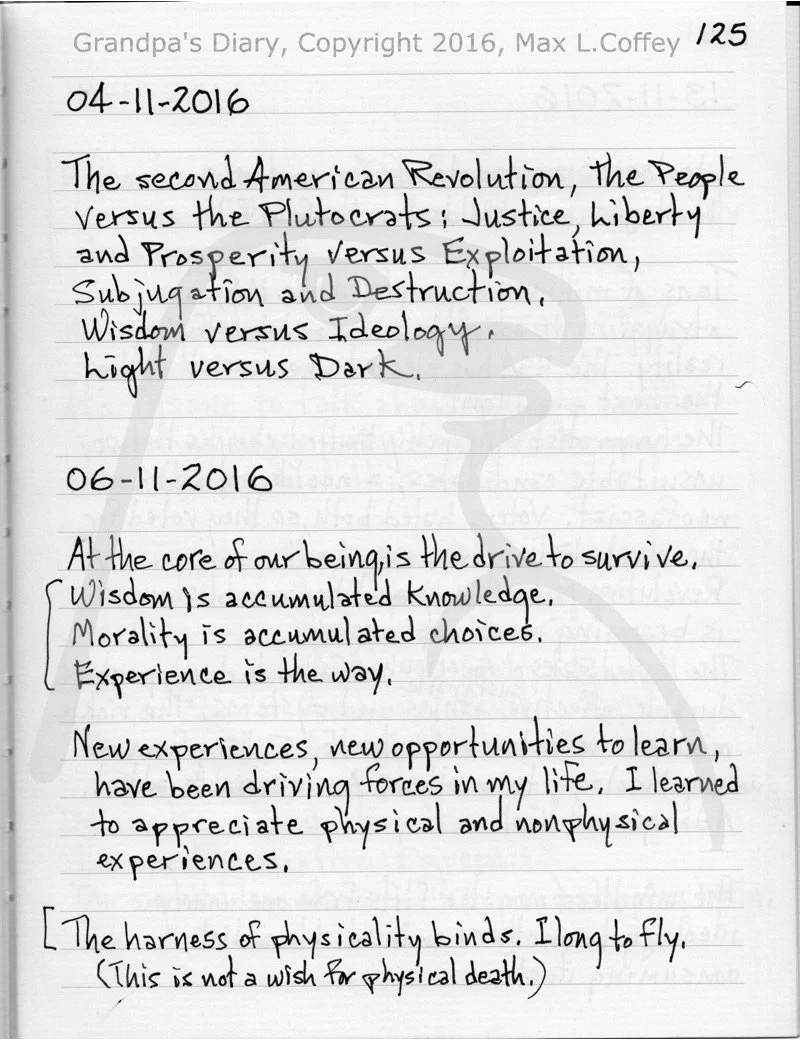 Grandpa's Diary, Copyright 2016, Max L.Coffey 125
04-11-2016
The second American Revolution, the People
versus the Plutocrats: Justice, Liberty
and Prosperity versus Exploitation,
Subjugation and Destruction.
Wisdom versus Ideology.
Light versus Dark.
06-11-2016
At the core of our being, is the drive to survive.
Wisdom is accumulated knowledge.
Morality is accumulated choices.
Experience is the way.
New experiences, new opportunities to learn,
have been driving forces in my life. I learned
to appreciate physical and nonphysical
experiences.
[The harness of physicality binds. I long to fly.
(This is not a wish for physical death.)